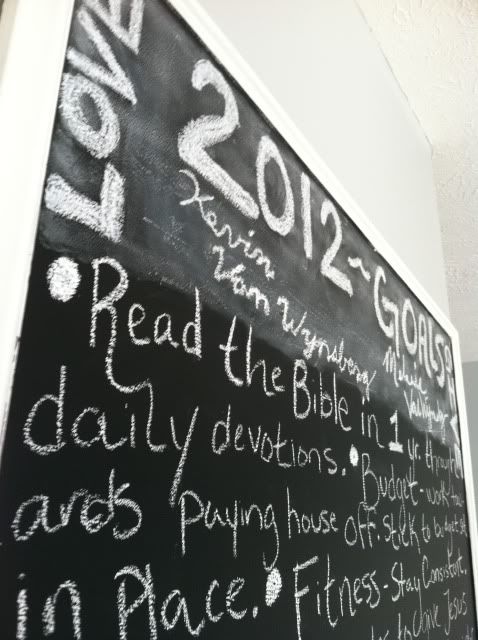 LOVE
2012~GOALS
Kevin
Van Wynsberg
• Read the Bible in 1 yr. through
daily devotions. • Budget - work tow
ards paying house off. stick to budget
in Place. • Fitness - Stay Consistent.
Jesus